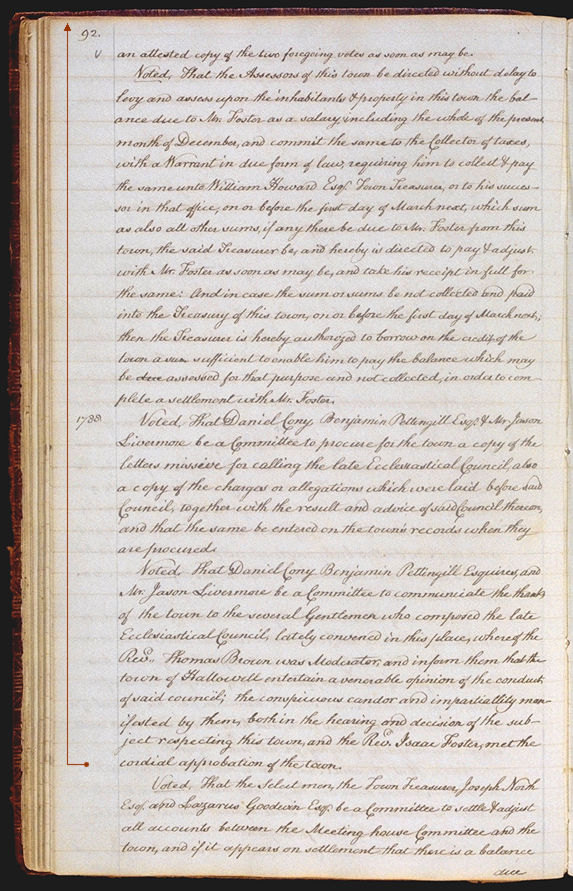 92.
an attested copy of the two foregoing votes as soon as may be.
Voted, That the Assessors of this town be directed without delay to
levy and assess upon the inhabitants & property in this town the bal-
ance due to Mr. Foster as a salary, including the whole of the present
month of December, and commit the same to the Collector of taxes,
with a Warrant in due form of law, requiring him to collect & pay
the same unto William Howard Esqr. Town Treasurer, or to his succes-
sor in that office, on or before the first day of March next, which sum
as also all other sums, if any there be due to Mr. Foster from this
town, the said Treasurer be, and hereby is directed to pay & adjust
with Mr. Foster as soon as may be, and take his receipt in full for
the same: And in case the sum or sums be not collected and paid
into the Treasury of this town, on or before the first day of March next,
then the Treasurer is hereby authoryzed to borrow on the credit of the
town a sum sufficient to enable him to pay the balance which may
be due assessed for that purpose and not collected, in order to com-
plete a settlement with Mr. Foster.
1788
Voted, That Daniel Cony Benjamin Pettengill Esqs. & Mr Jason
Livermore be a Committee to procure for the town a copy of the
letters missive for calling the late Ecclesiastical Council, also
a copy of the charges or allegations which were laid before said
Council, together with the result and advice of said Council thereon,
and that the same be entered on the town's records when they
are procured.
Voted, That Daniel Cony Benjamin Pettingill Esquires, and
Mr. Jason Livermore be a Committee to communicate the thanks
of the town to the several Gentlemen who composed the late
Ecclesiastical Council, lately convened in this place, whereof the
Revd. Thomas Brown was Moderator, and inform them that the
town of Hallowell entertain a venerable opinion of the conduct
of said council; the conspicuous candor and impartiallity man-
ifested by them, both in the hearing and decision of the sub-
ject respecting this town, and the Revd. Isaac Foster, met the
cordial approbation of the town.
Voted, That the Select men, the Town Treasurer, Joseph North
Esqr. and Lazarus Goodwin Esqr. be a Committee to settle & adjust
all accounts between the Meeting house Committee and the
town, and if it appears on settlement that there is a balance
due